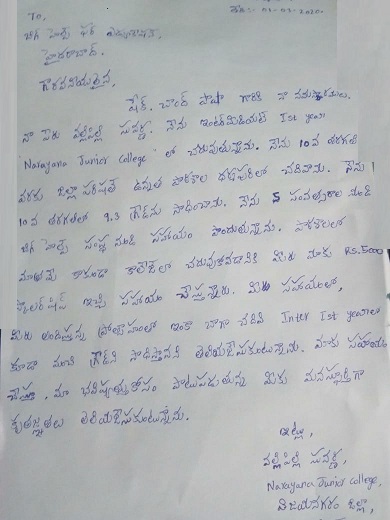 తేది:- 02-02-2020
To,
బిగ్ హెల్ప్ ఫర్ ఎడ్యుకేషన్,
హైదరాబాద్.
గౌరవనీయులైన,
షేక్. చాంద్ పాషా గారికి నా నమస్కారములు.
నా పేరు వల్లిపిల్లి సువర్ణ. నేను ఇంటర్మీడియట్ Ist year
"Narayana Junior College" లో చదువుతున్నాను. నేను 10వ తరగతి
వరకు జిల్లా పరిషత్ ఉన్నత పాఠశాల లో చదివాను. నేను
10వ తరగతిలో 9.3 గ్రేడ్‌ను సాధించాను. నేను 5 సంవత్సరాల నుండి
బిగ్ హెల్ప్ సంస్థ నుండి సహాయం పొందుతున్నాను. పాఠశాలలో
మాత్రమే కాకుండా కాలేజీలో చదువుకోవడానికి మీరు నాకు Rs.5000
స్కాలర్‌షిప్ ఇచ్చి సహాయం చేస్తున్నారు. మీరు సహాయంతో,
మీరు అందిస్తున్న ప్రోత్సాహంతో ఇంకా బాగా చదివి Inter Ist yearలో
కూడా మంచి గ్రేడ్‌ని సాధిస్తానని తెలియజేసుకుంటున్నాను. మాకు సహాయం
చేస్తూ, మా భవిష్యత్తుకోసం పాటుపడుతున్న మీకు మనస్ఫూర్తిగా
కృతజ్ఞతలు తెలియజేసుకుంటున్నాను.
ఇట్లు,
వల్లిపిల్లి సువర్ణ,
Narayana Junior College,
విజయనగరం జిల్లా,